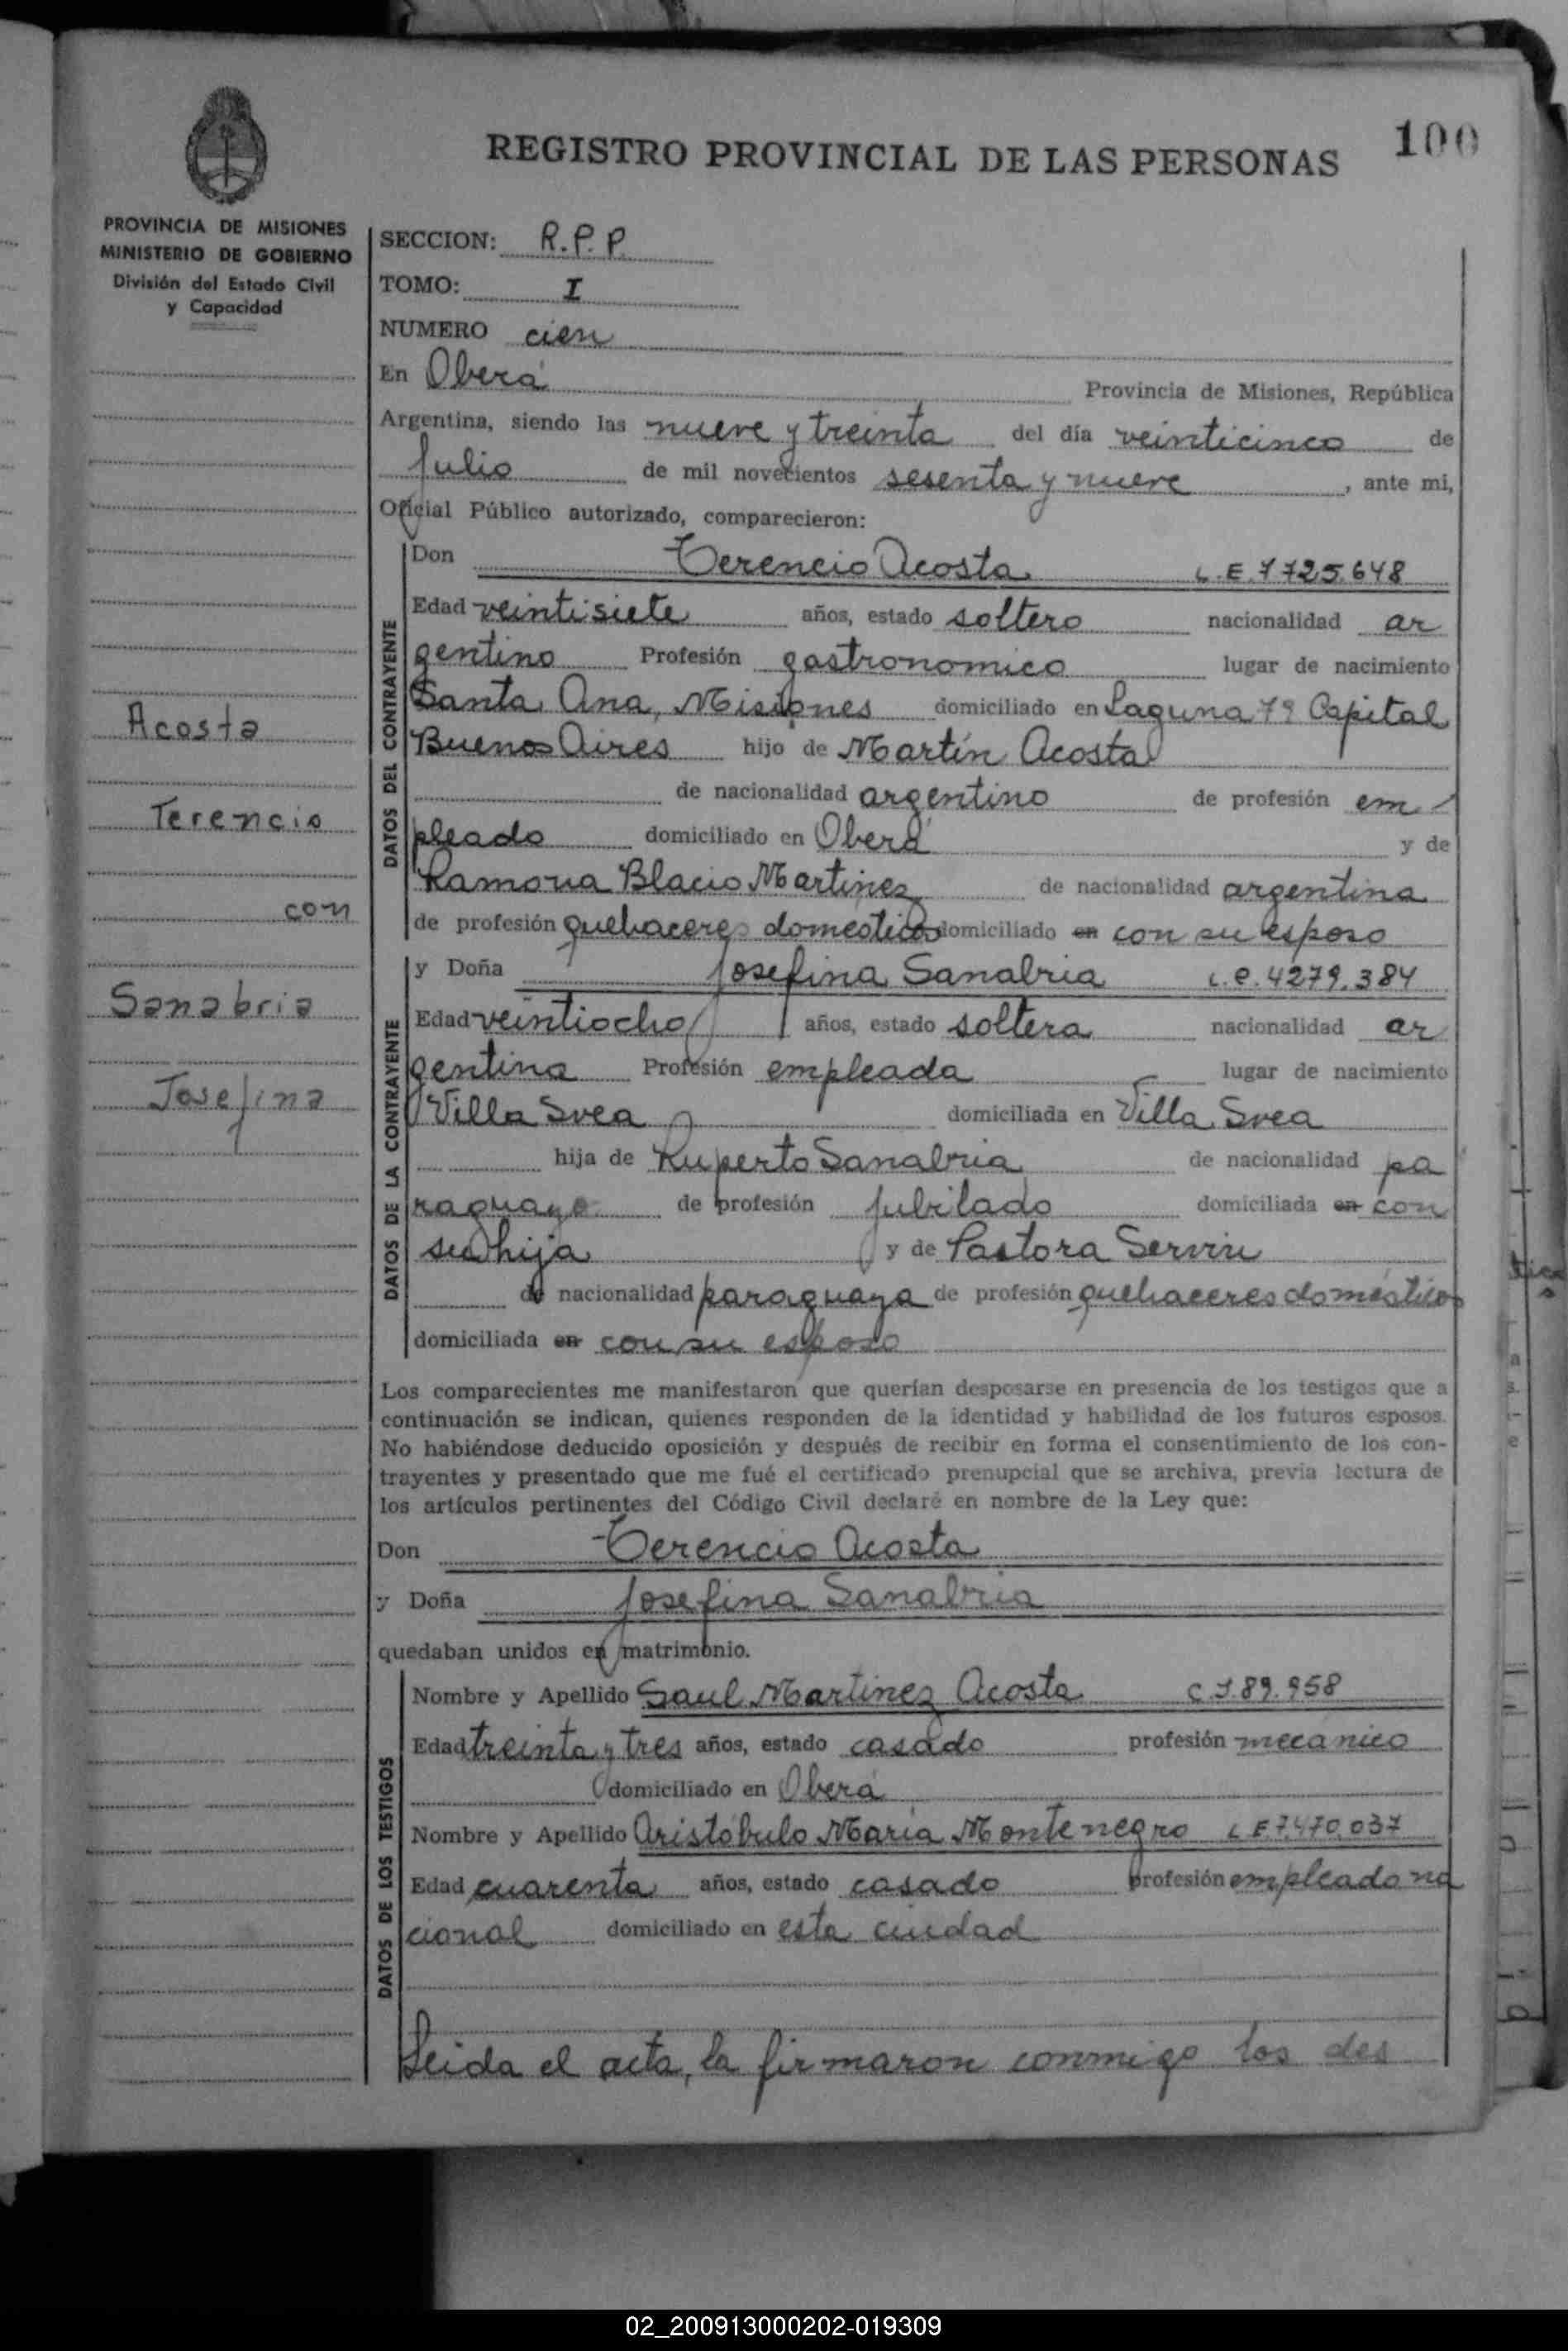 REGISTRO PROVINCIAL DE LAS PERSONAS
100
PROVINCIA DE MISIONES
MINISTERIO DE GOBIERNO
División del Estado Civil
y Capacidad
Acosta
Terencio
con
Sanabria
Josefina
SECCION: R.P.P.
TOMO: I
NUMERO cien
En Oberá Provincia de Misiones, República
Argentina, siendo las nueve y treinta del día veinticinco de
Julio de mil novecientos sesenta y nueve, ante mi,
Oficial Público autorizado, comparecieron:
DATOS DEL CONTRAYENTE
Don Terencio Acosta L.E. 7725.648
Edad veintisiete años, estado soltero nacionalidad ar
gentino Profesión gastronomico lugar de nacimiento
Santa Ana, Misiones domiciliado en Laguna 79 Capital
Buenos Aires hijo de Martín Acosta
de nacionalidad argentino de profesión em
pleado domiciliado en Oberá y de
Ramona Blacio Martinez de nacionalidad argentina
de profesión quehaceres domésticos domiciliado en con su esposo
DATOS DE LA CONTRAYENTE
y Doña Josefina Sanabria L.C. 4279.384
Edad veintiocho años, estado soltera nacionalidad ar
gentina Profesión empleada lugar de nacimiento
Villa Svea domiciliada en Villa Svea
hija de Ruperto Sanabria de nacionalidad pa
raguayo de profesión jubilado domiciliada en con
su hija y de Pastora Servin
de nacionalidad paraguaya de profesión quehaceres domésticos
domiciliada en con su esposo
Los comparecientes me manifestaron que querían desposarse en presencia de los testigos que a
continuación se indican, quienes responden de la identidad y habilidad de los futuros esposos.
No habiéndose deducido oposición y después de recibir en forma el consentimiento de los con-
trayentes y presentado que me fué el certificado prenupcial que se archiva, previa lectura de
los artículos pertinentes del Código Civil declaré en nombre de la Ley que:
Don Terencio Acosta
y Doña Josefina Sanabria
quedaban unidos en matrimonio.
DATOS DE LOS TESTIGOS
Nombre y Apellido Saul Martinez Acosta C.I. 89.958
Edad treinta y tres años, estado casado profesión mecanico
domiciliado en Oberá
Nombre y Apellido Aristóbulo María Montenegro L.E. 7.470.037
Edad cuarenta años, estado casado profesión empleado na
cional domiciliado en esta ciudad
Leida el acta, la firmaron conmigo los des
02_200913000202-019309